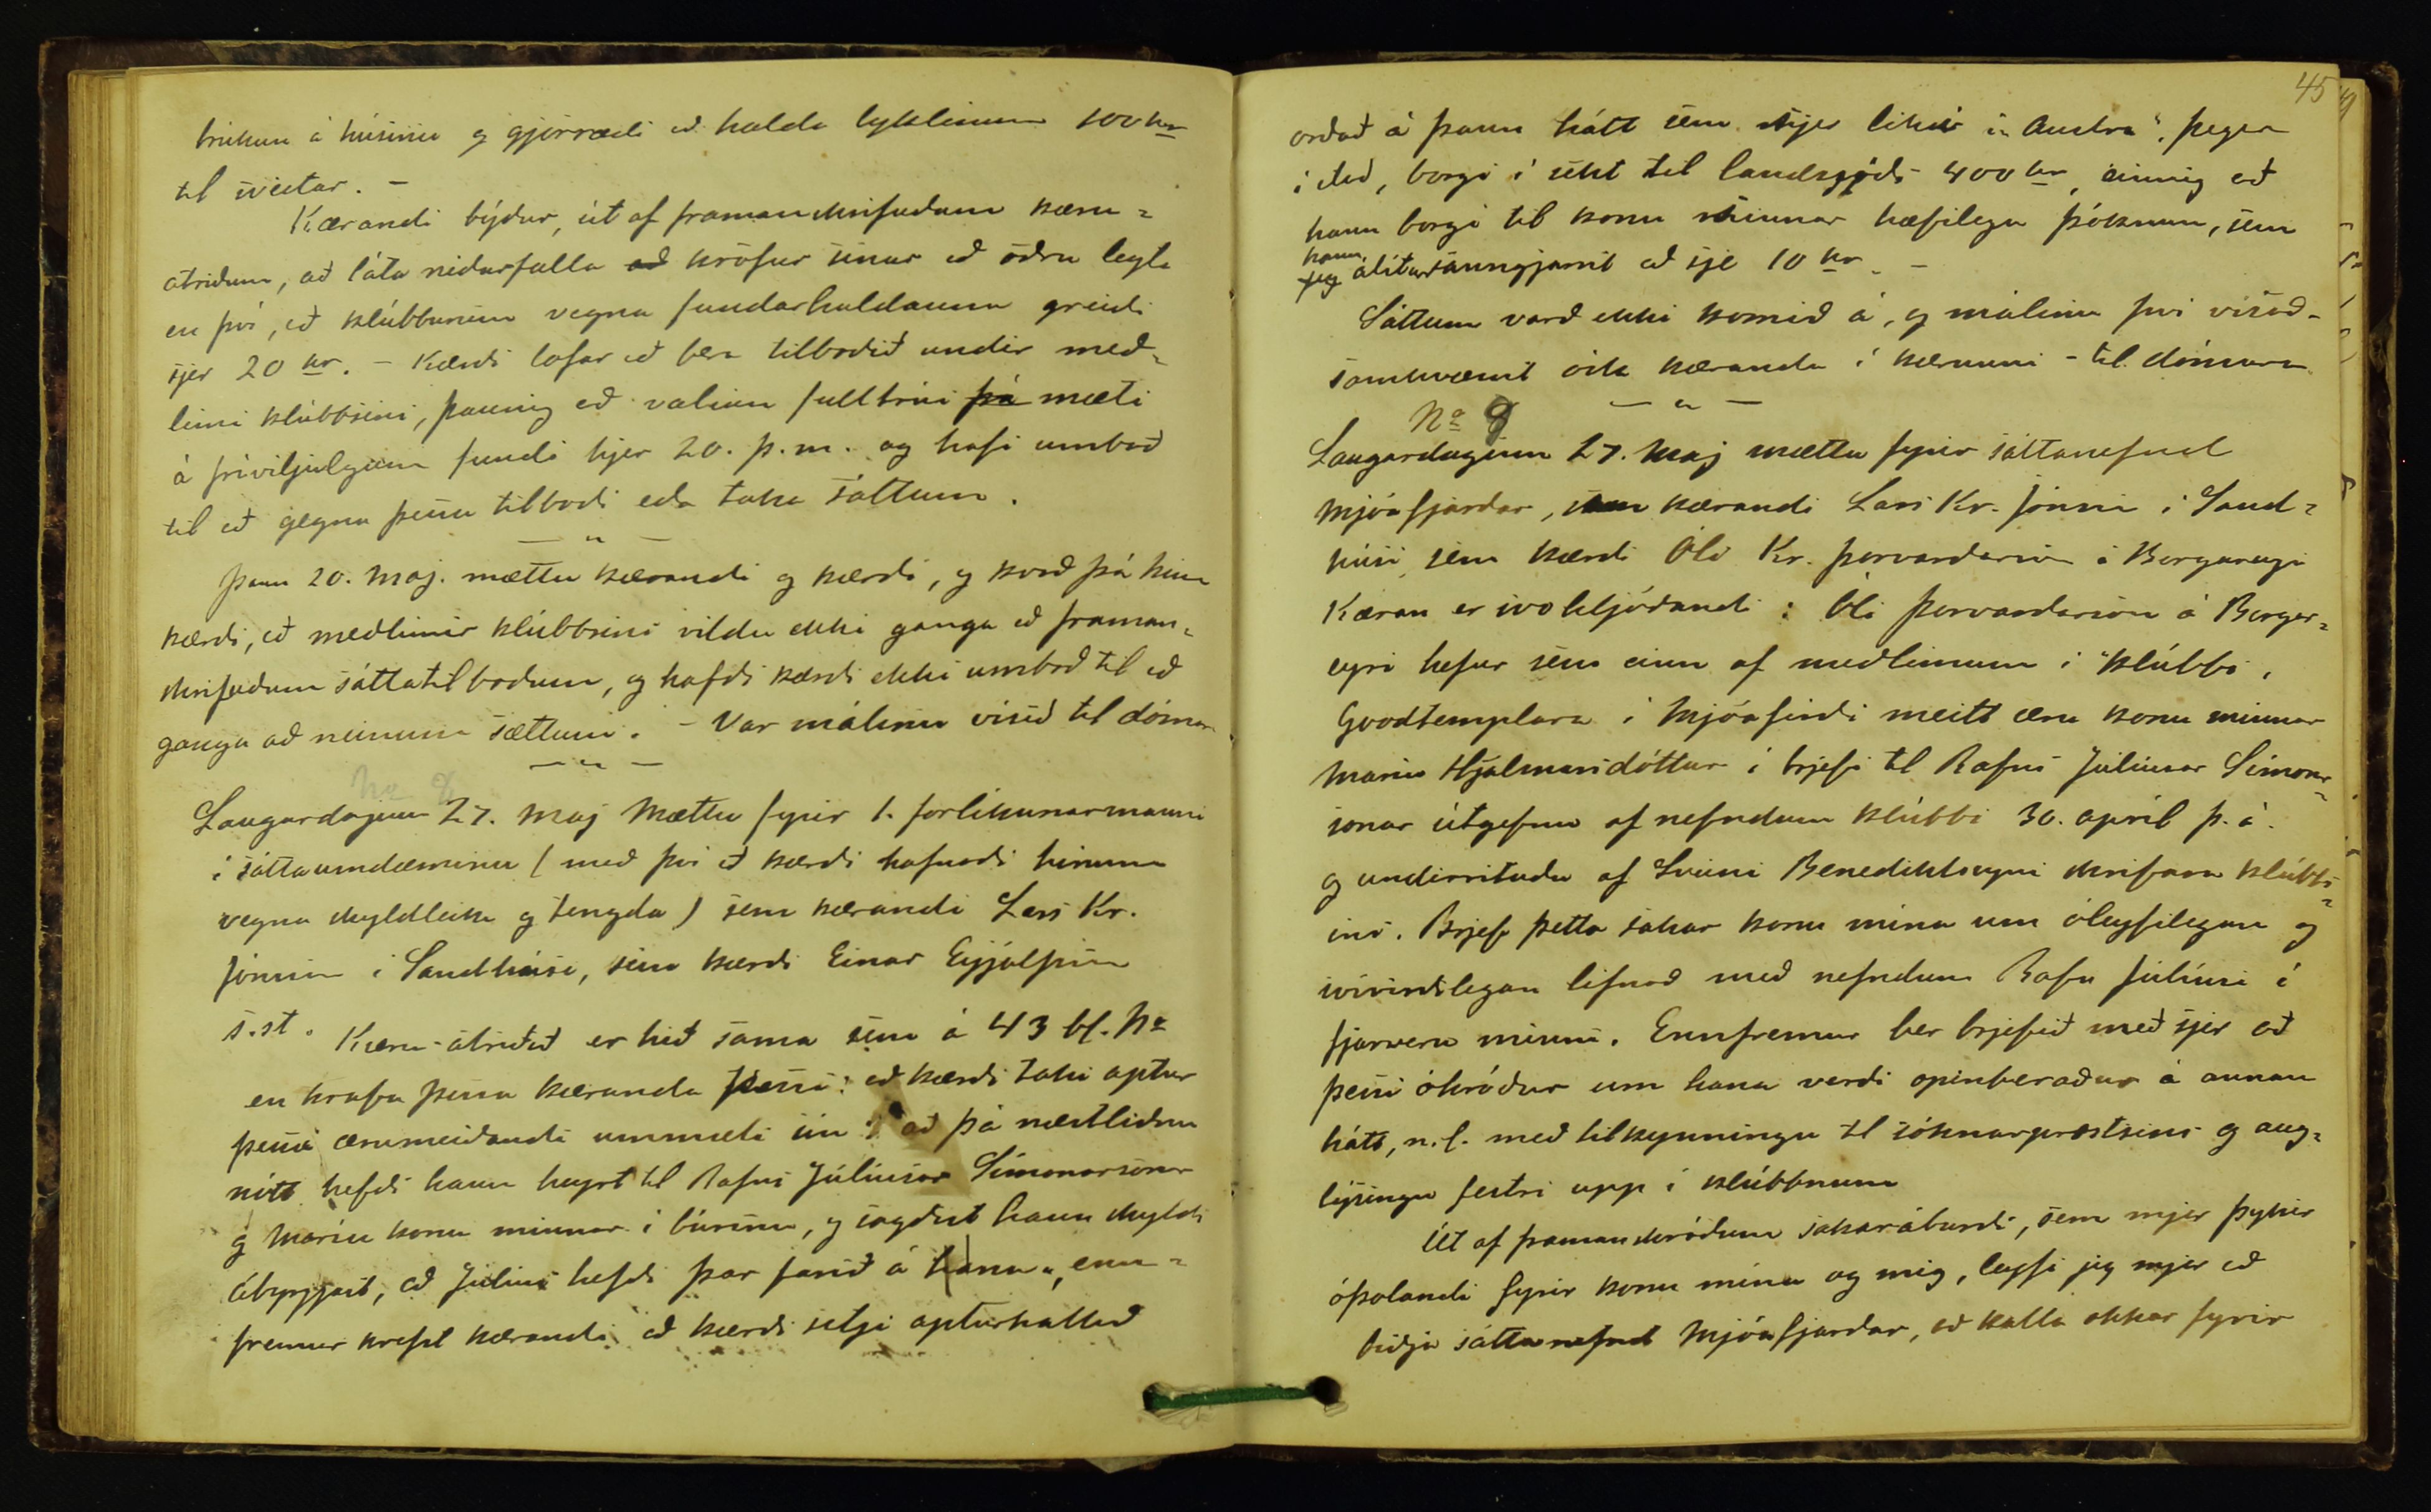 brúkun á húsinu og gjörræði að halda lyklinum 100 kr
til sveitar. –
Kærandi býður, út af framanskrifuðum kæru=
atriðum, að láta niðurfalla að kröfur sínar að öðru leyti
en því, að klúbburinn vegna fundarhaldanna greiði
sjer 20 kr. – Kærði lofar að bera tilboðið undir með=
limi klúbbsins, þannig að valinn fulltrúi þá mæti
á fríviljulgum fundi hjer 20. þ.m. og hafi umboð
til að gegna þessu tilboði eða taka sáttum.
— " —
Þann 20. Maj. mættu kærandi og kærði, og kvað þá hinn
kærði, að meðlimir klúbbsins vildu ekki ganga að framan=
skrifuðum sáttatilboðum, og hafði kærði ekki umboð til að
ganga að neinum sættum. – Var málinu vísað til dómar
— " —
No 8
Laugardaginn 27. Maj Mættu fyrir 1. forlíkunarmanni
í sáttaumdæminu (með því að kærði hafnaði hinum
vegna skyldleika og tengda) sem kærandi Lars Kr.
Jónsson í Sandhúsi, sem kærði Einar Eyjólfsson
s.st. Kæru-atriðið er hið sama sem á 43 bl. No
en krafa þessa kæranda þessi: að kærði taki aptur
þessi ærumeiðandi ummæli sín: að þá næstliðnu
nótt hefði hann heyrt til Rafns Júlíusar Símonarsonar
og Maríu konu minnar í búrinu, og sagðist hann skyldi
ábyrgjast, að Júlíus hefði þar farið á hana", enn=
fremur krefst kærandi að kærði setji apturkallað
45
orðað á þann hátt sem hjer líkar í „Austra". þegar
í stað, borgi í sekt til landssjóðs 400 kr, einnig að
hann borgi til konu minnar hæfilega þóknun, sem
hann
jeg álítur sanngjarnt að sje 10 kr. –
Sáttum varð ekki komið á, og málinu því vísað –
samkvæmt ósk kæranda í kærunni – til dómara
— " —
No 9
Laugardaginn 27. Maj mættu fyrir sáttanefnd
Mjóafjarðar, sem kærandi Lars Kr. Jónsson í Sand=
húsi sem kærði Óli Kr. Þorvarðarson á Borgareyri
Kæran er svohljóðandi: Óli Þorvarðarson á Borgar=
eyri hefur sem einn af meðlimum í "klúbbi,
Goodtemplara í Mjóafirði meitt æru konu minnar
Maríu Hjálmarsdóttur í brjefi til Rafns Júlíusar Símonar=
sonar útgefnu af nefndum klúbbi 30. apríl þ.á.
og undirrituðu af Sveini Benediktssyni skrifara klúbbs=
ins. Brjef þetta sakar konu mína um óleyfilegan og
svívirðilegan lifnað með nefndum Rafn Júlíusi í
fjarveru minni. Ennfremur ber brjefið með sjer að
þessi óhróður um hana verði opinberaður á annan
hátt, n.l. með tilkynningu til sóknarprestsins og aug=
lýsingu festri upp í klúbbnum
Út af framanskráðum sakaráburði, sem mjer þykir
óþolandi fyrir konu mína og mig, leyfi jeg mjer að
biðja sáttanefnd Mjóafjarðar, að kalla okkar fyrir